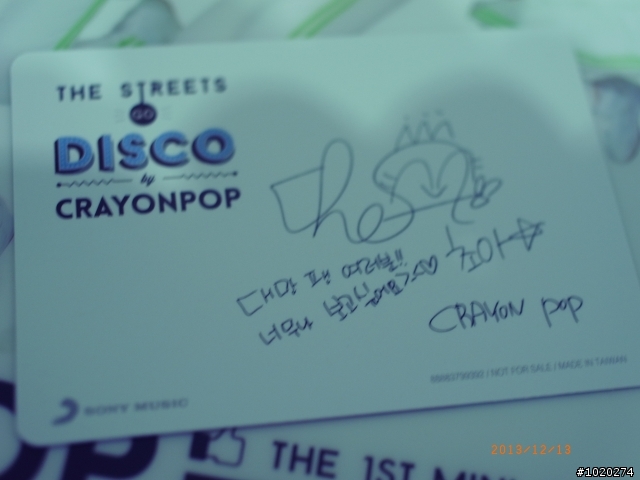 THE STREETS
GO
DISCO
by
CRAYONPOP
대만 팬 여러분!!
너무나 보고싶어요
초아☆
CRAYON POP
/ NOT FOR SALE / MADE IN TAIWAN
SONY MUSIC
THE 1ST MINI
2013/12/13
#1020274